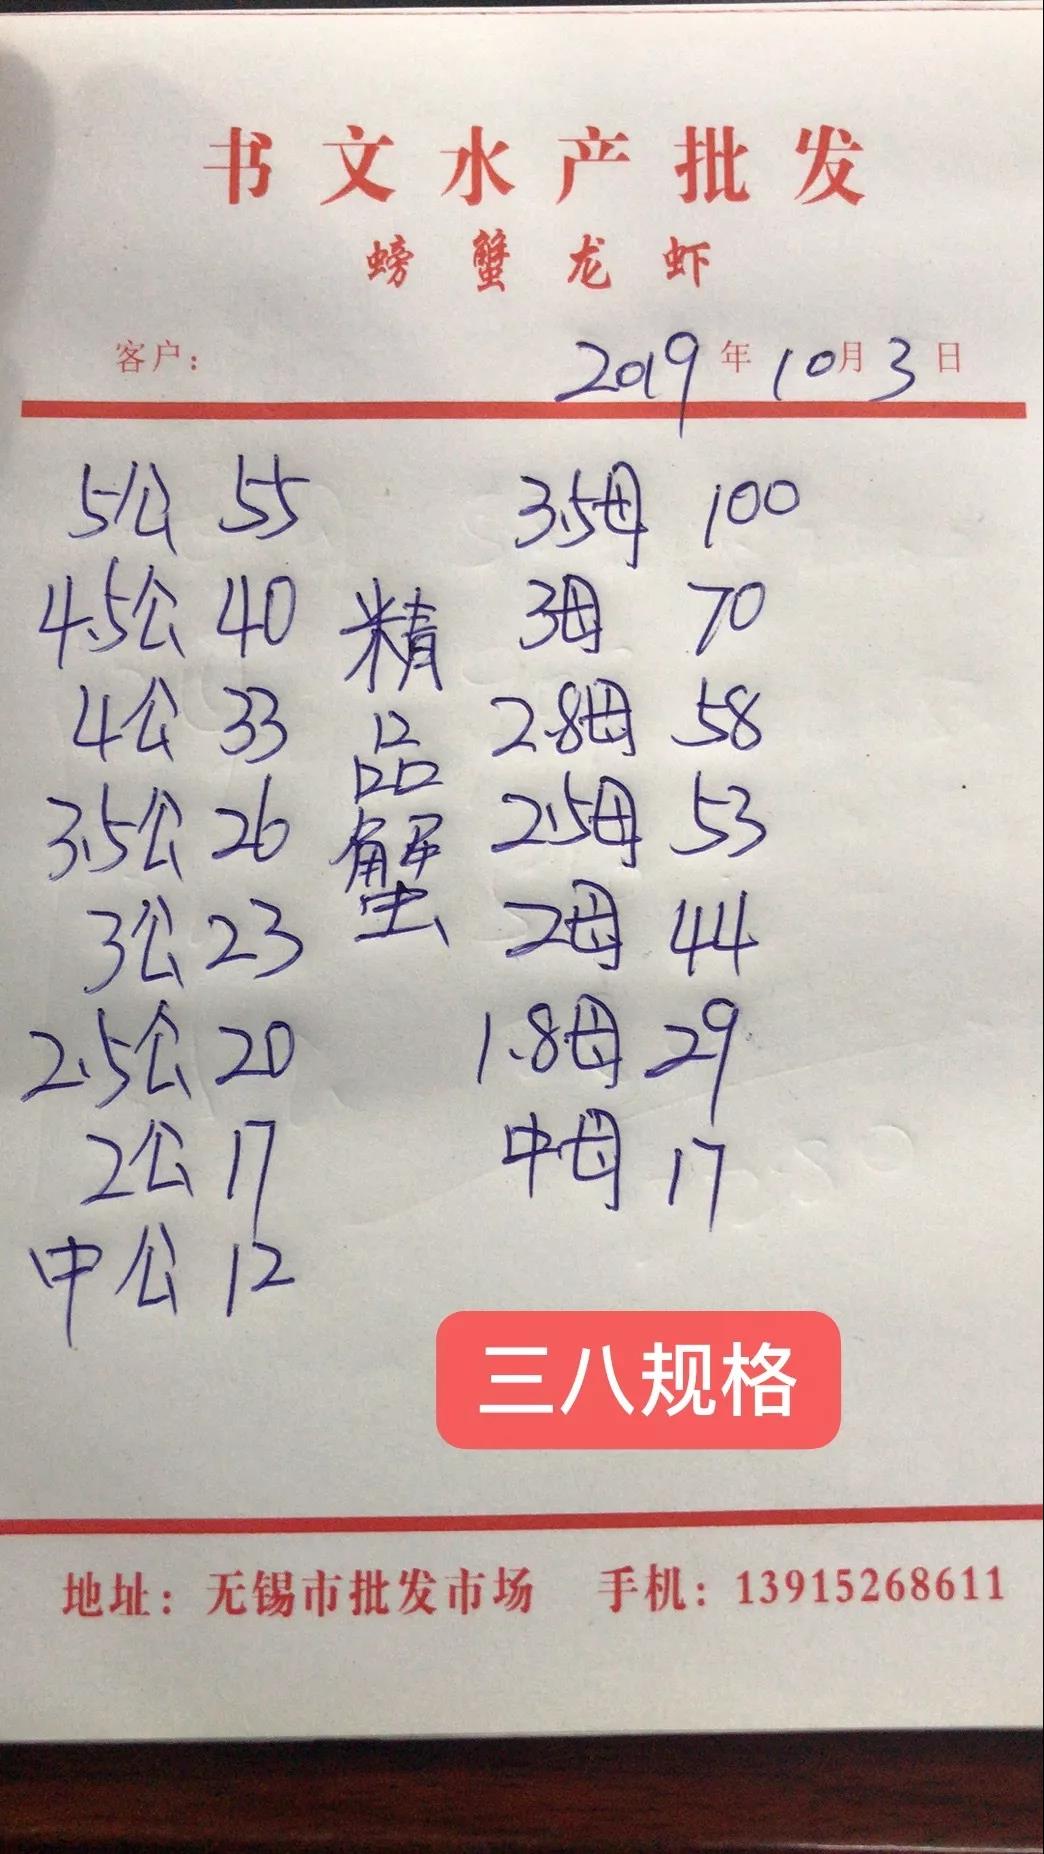 书文水产批发
螃蟹龙虾
客户： 2019年10月3日
5公 55 3.5母 100
4.5公 40 3母 70
4公 33 2.8母 58
3.5公 26 2.5母 53
3公 23 2母 44
2.5公 20 1.8母 29
2公 17 中母 17
中公 12
精品蟹
三八规格
地址：无锡市批发市场 手机：13915268611